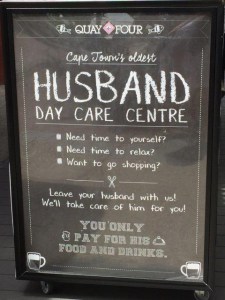 QUAY FOUR
Cape Town's oldest
HUSBAND
DAY CARE CENTRE
Need time to yourself?
Need time to relax?
Want to go shopping?
Leave your husband with us!
We'll take care of him for you!
YOU ONLY
PAY FOR HIS
FOOD AND DRINKS.